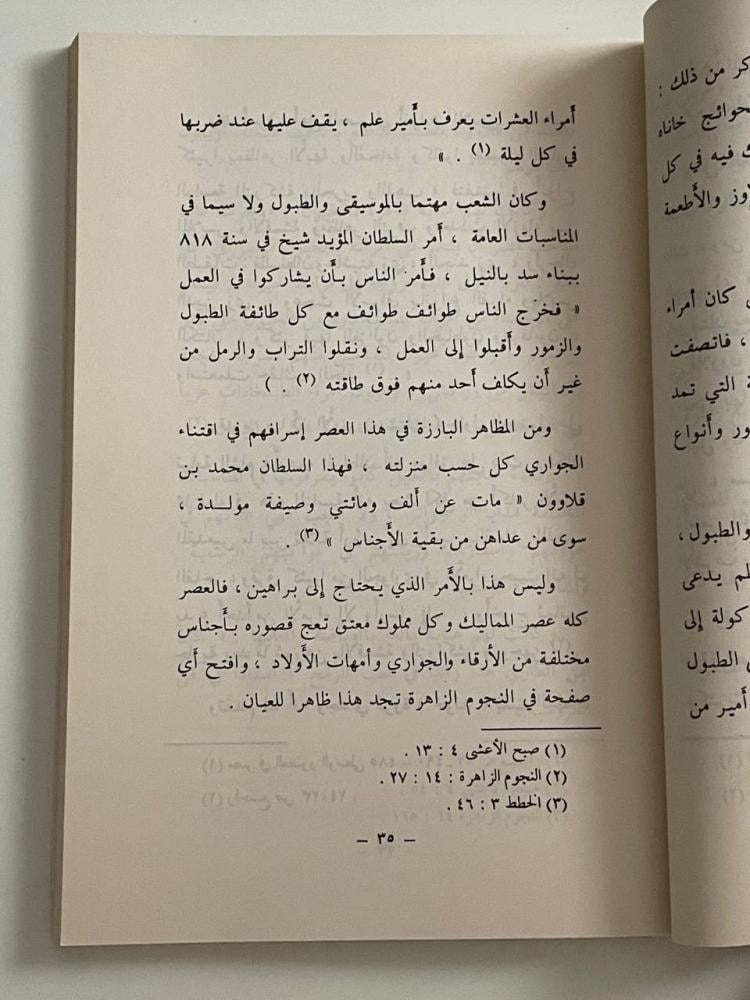 أمراء العشرات يعرف بأمير علم ، يقف عليها عند ضربها
في كل ليلة (١) . »
وكان الشعب مهتما بالموسيقى والطبول ولا سيما في
المناسبات العامة ، أمر السلطان المؤيد شيخ في سنة ٨١٨
ببناء سد بالنيل ، فأمر الناس بأن يشاركوا في العمل
« فخرج الناس طوائف طوائف مع كل طائفة الطبول
والزمور وأقبلوا إلى العمل ، ونقلوا التراب والرمل من
غير أن يكلف أحد منهم فوق طاقته (٢) . )
ومن المظاهر البارزة في هذا العصر إسرافهم في اقتناء
الجواري كل حسب منزلته ، فهذا السلطان محمد بن
قلاوون « مات عن ألف ومائتي وصيفة مولـــدة ،
سوى من عداهن من بقية الأجناس » (٣) .
وليس هذا بالأمر الذي يحتاج إلى براهين ، فالعصر
كله عصر المماليك وكل مملوك معتق تعج قصوره بأجناس
مختلفة من الأرقاء والجواري وأمهات الأولاد ، وافتح أي
صفحة في النجوم الزاهرة تجد هذا ظاهرا للعيان .
(١) صبح الأعشى ٤ : ١٣ .
(٢) النجوم الزاهرة : ١٤ : ٢٧ .
(٣) الخطط ٣ : ٤٦ .
— ٣٥ —
كر من ذلك :
حوائج خاناه
فيه في كل
وز والأطعمة
كان أمراء
، فاتصفت
التي تمد
ور وأنواع
والطبول ،
لم يدعى
كولة إلى
الطبول
أمير من